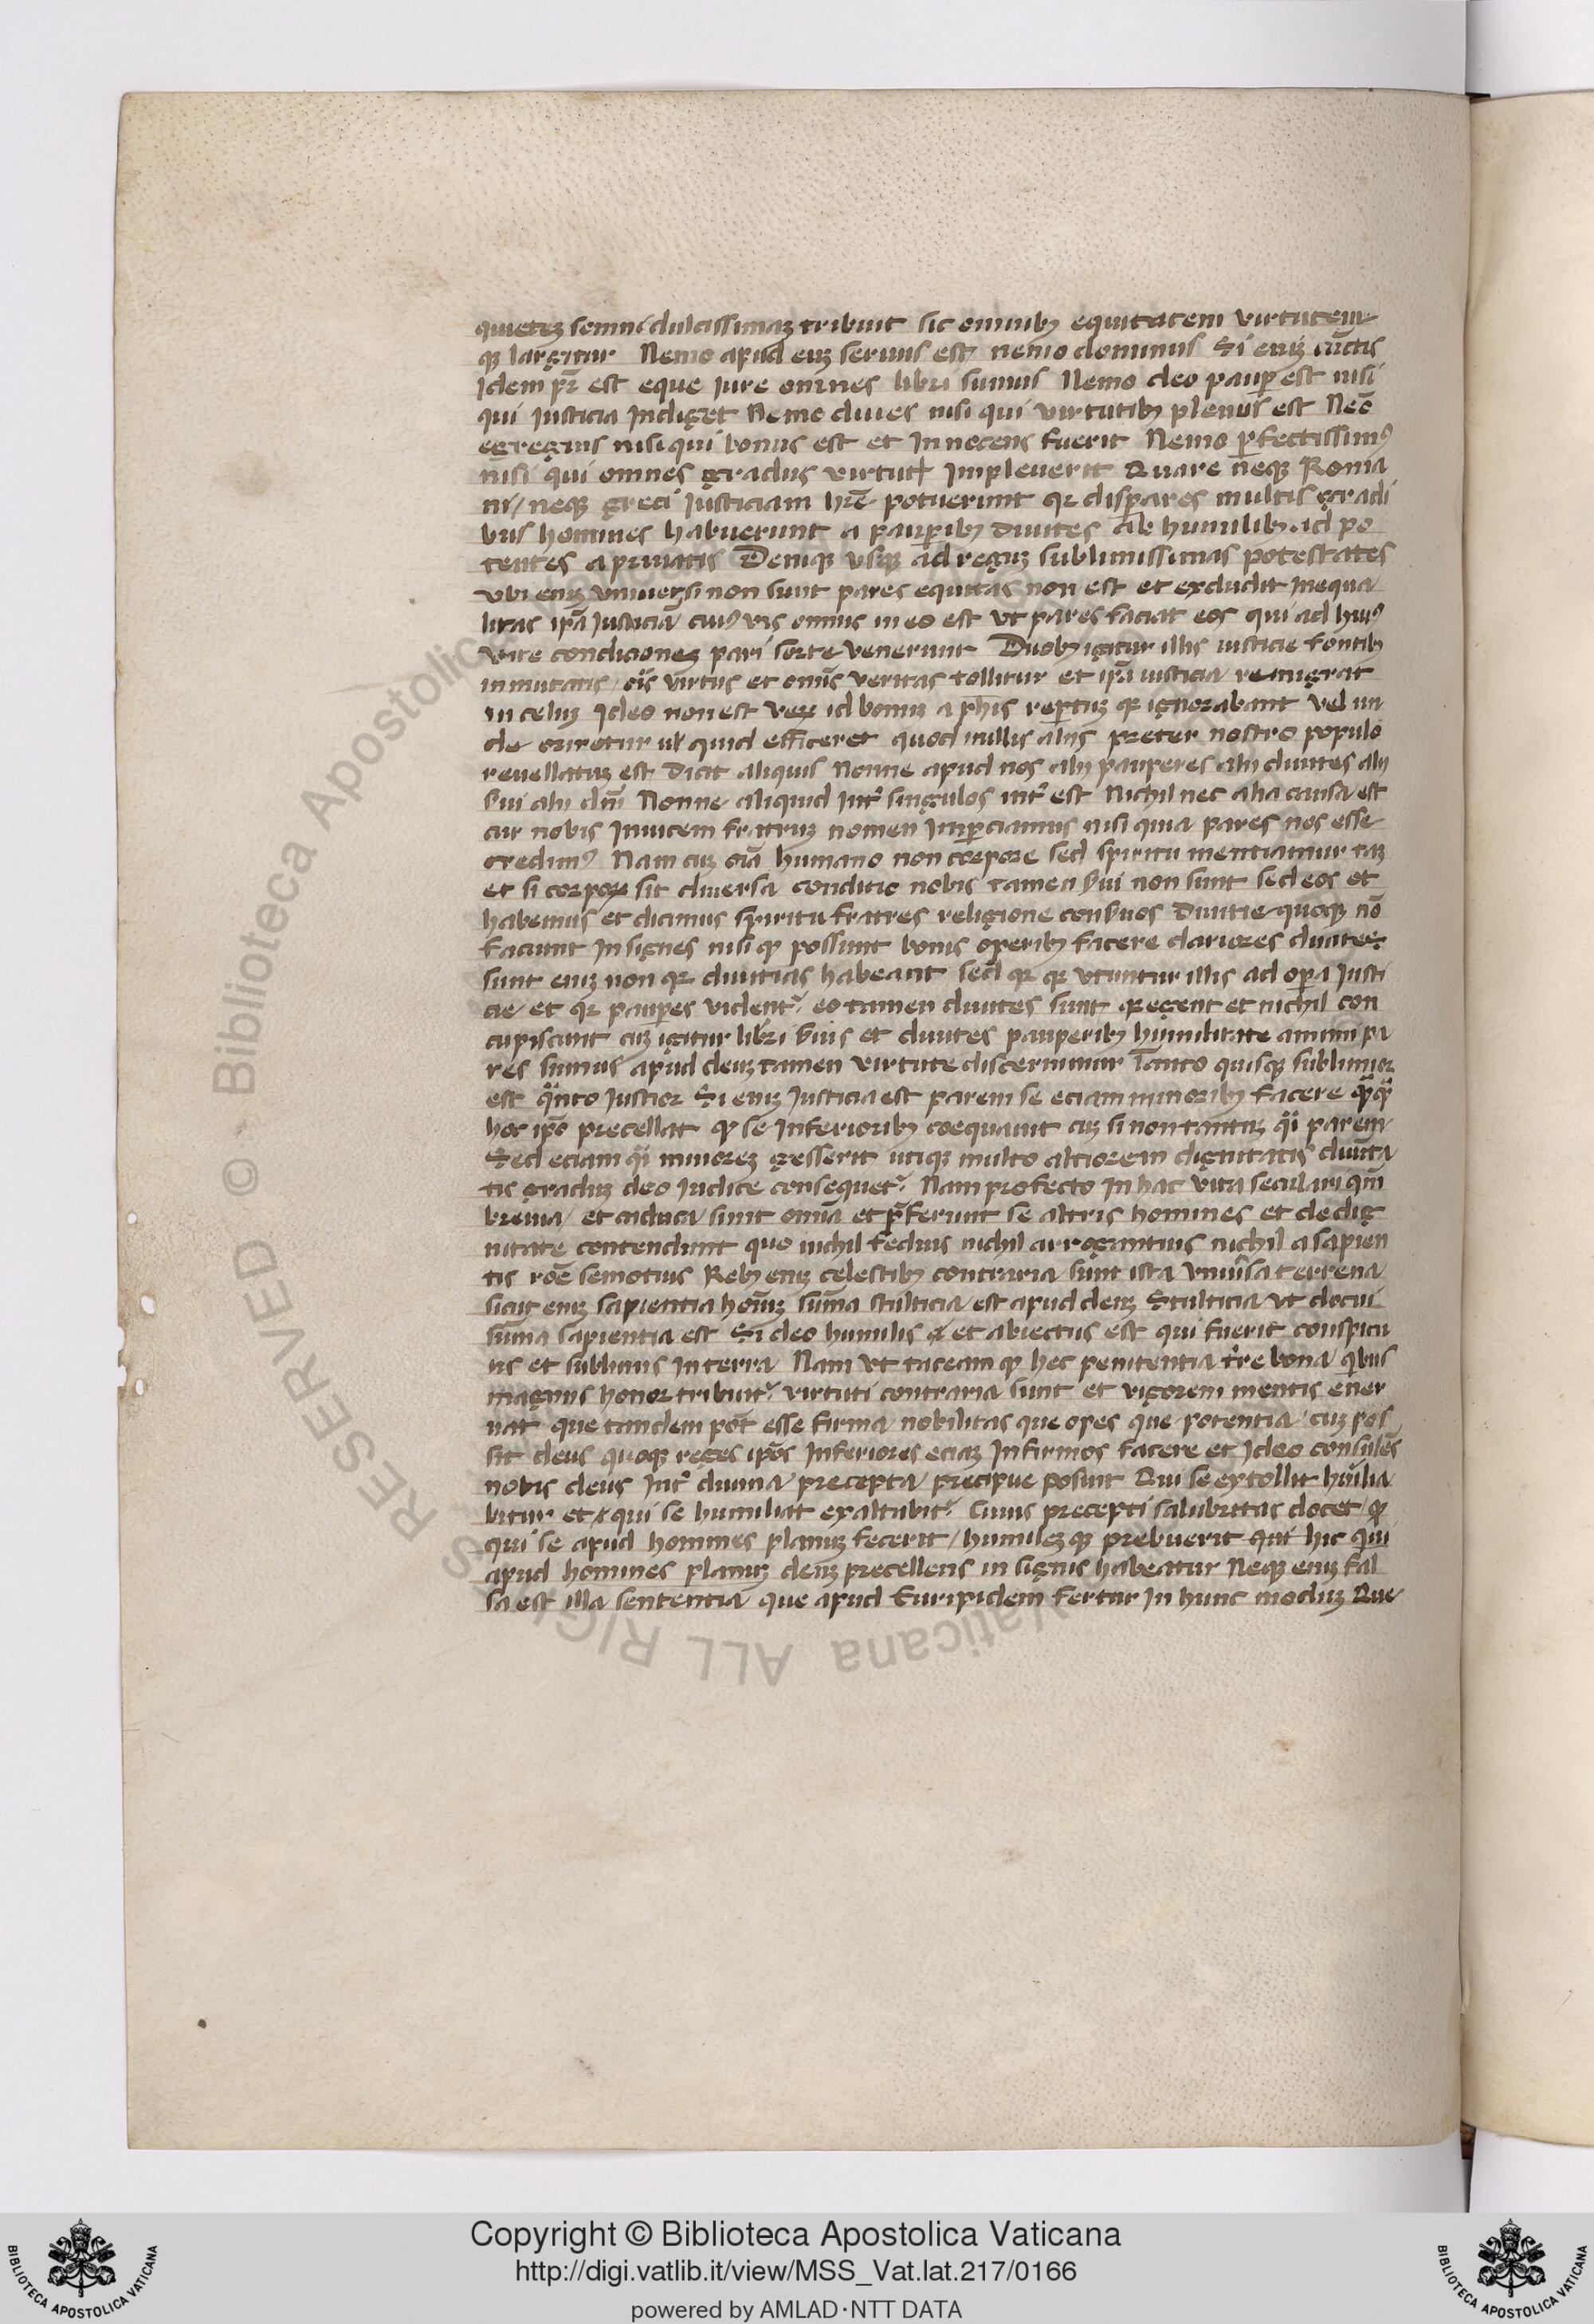 quietez somni dulcissimaz tribuit sic omnibꝫ equitatem virtutem
qꝫ largitur Nemo apud euz seruus est nemo dominus Si eniz cūctis
Idem pr̄ est eque Iure omnes libri sumus Nemo deo pauꝑ est nisi
qui Iusticia Indiget Nemo diues nisi qui virtutibꝫ plenus est Neō
egregius nisi qui bonus est et Innocens fuerit Nemo ꝑfectissimꝰ
nisi qui omnes gradus virtutꝭ Impleuerit Quare neqꝫ Roma
ni / neqꝫ greci Iusticiam hr̄e potuerunt qꝛ dispares multis gradi
bus homines habuerunt a pauꝑibꝫ diuites ab humilibꝫ ad po
tentes a priuatis Deniqꝫ vsqꝫ ad reguz sublimissimas potestates
vbi eniz vniuersi non sunt pares equitas non est et excludit Inequa
litas ip̄a Iusticiā cuiꝰ vis omnis in eo est vt pares faciat eos qui ad huiꝰ
vite condicionez pari sorte venerunt Duobꝫ igitur illis iusticie fontibꝫ
inmutatis / oīs virtus et omīs veritas tollitur et ip̄a iusticia remigrat
in celuz Ideo non est veꝝ id bonuz a phīs reꝑtuz qꝛ ignorabant vel un
de oriretur ul̄ quid efficeret quod nullis aliis preter nostro populo
reuellatuz est Dicat aliquis Nonne apud nos alij pauperes alij diuites alij
s̄ui alij dn̄i Nonne aliquid Int̓ singulos int̓ est Nichil nec alia causa est
cur nobis Inuicem fratruz nomen Imꝑciamus nisi quia pares nos esse
credimꝰ Nam cuz oīa humano non corpore sed spiritu mentiamur taz
et si corpoꝝ sit diuersa conditio nobis tamen s̄ui non sunt sed eos et
habemus et dicimus spiritu fratres religione cons̄uos Diuitie quoqꝫ nō
faciunt Insignes nisi qꝫ possunt bonis operibꝫ facere clariores diuites
sunt eniz non qꝛ diuitias habeant sed qꝛ qꝛ vtuntur illis ad oꝑa Iusti
cie et qꝛ pauꝑes vident̓ eo tamen diuites sunt qꝛ egent et nichil con
cupiscunt cuz igitur libri s̄uis et diuites pauperibꝫ humilitate animi pa
res sumus apud deuz tamen virtute discernimur Tanto quisqꝫ sublimior
est qͣnto Iustior Si eniz Iusticia est parem se eciam minoribꝫ facere qͣqͣ
hoc ip̄o precellat qꝫ se Inferioribꝫ coequauit cuz si non tantuz qͣi parem
Sed eciam qͣi minorez gesserit utiqꝫ multo altiorem dignitatis diuita
tis graduz deo Iudice consequet̓ Nam profecto In hac vita seculari qm̄
breuia / et caduca sunt omīa et p̄ferunt se altris homines et de dig
nitate contendunt quo nichil fedius nichil arrogantius nichil a sapien
tis roē semotius Rebꝫ eniz celestibꝫ contraria sunt ista vniu̓sa terrena
sicut eniz sapientia hoīuz sūma stulticia est apud deuz Stulticia vt docui
sūma sapientia est Si deo humilis et abiectus est qui fuerit conspicu
us et sublimis In terra Nam vt taceam qꝫ hec penitentia tr̄e bona qͥbus
magnus honor tribuit̓ virtuti contraria sunt et vigorem mentis ener
uat que tandem pōt esse firma nobilitas que opes que potentia cuz pos
sit deus quoqꝫ reges ip̄os Inferiores eciaz Infirmos facere et Ideo consulēs
nobis deus Int̓ diuina precepta precipue posuit Qui se extollit hūilia
bitur et qui se humiliat exaltabit̓ Cuius precepti salubritas docet qꝫ
qui se apud homines planuz fecerit / humilez qꝫ prebuerit hic qui
apud homines planuz deuz precellens in signis habeatur Neqꝫ eniz fal
sa est illa sententia que apud Euripidem fertur In hunc moduz Que
Copyright © Biblioteca Apostolica Vaticana
http://digi.vatlib.it/view/MSS_Vat.lat.217/0166
powered by AMLAD·NTT DATA